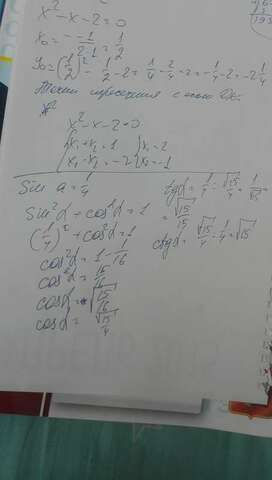 x² - x - 2 = 0
x₀ = - -1/2·1 = 1/2
y₀ = (1/2)² - 1/2 - 2 = 1/4 - 2/4 - 2 = - 1/4 - 2 = -2 1/4
Точки пересечения с осью Ox:
x² - x - 2 = 0
{x₁ + x₂ = 1 {x₁ = 2
{x₁ · x₂ = -2 {x₂ = -1
Sin α = 1/4
sin²α + cos²α = 1
(1/4)² + cos²α = 1
cos²α = 1 - 1/16
cos²α = 15/16
cosα = √15/16
cosα = √15/4
tgα = 1/4 : √15/4 = 1/√15
= √15/15
ctgα = √15/4 : 1/4 = √15